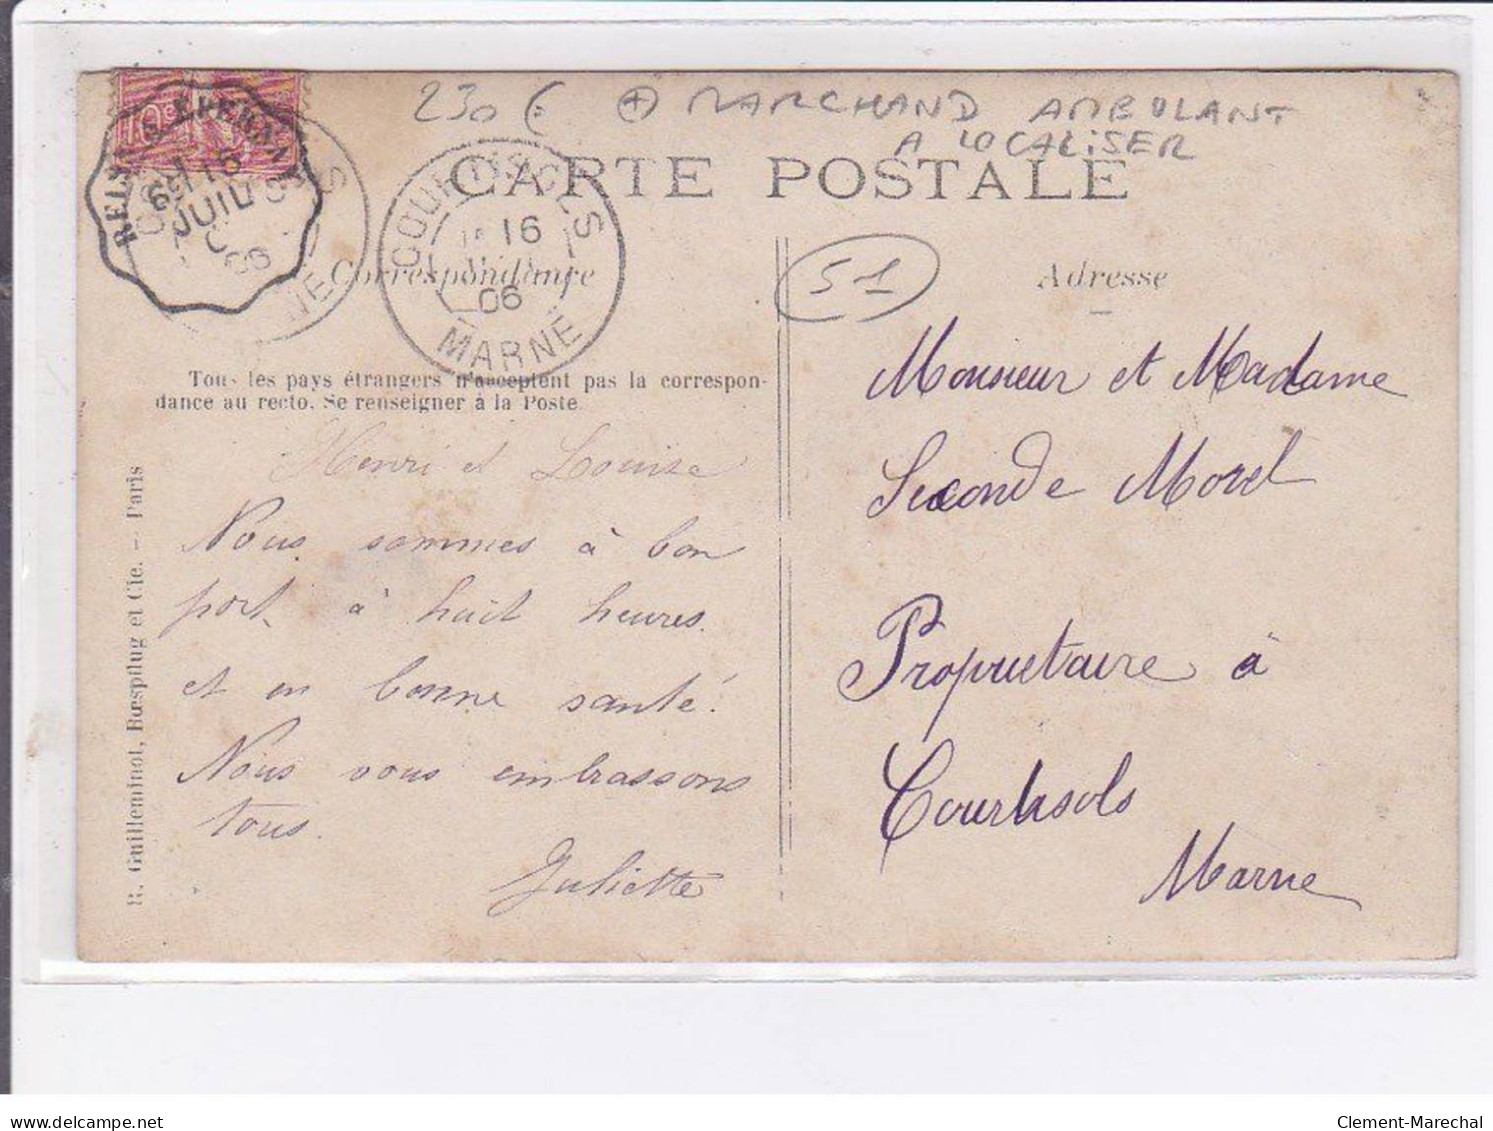 230 € + MARCHAND AMBULANT
A LOCALISER
CARTE POSTALE
COURTISOLS
16
06
MARNE
15
JUIL
06
51
Correspondance
Adresse
Tous les pays étrangers n'acceptent pas la correspon-
dance au recto. Se renseigner à la Poste.
R. Guilleminot, Bœspflug et Cie. — Paris
Henri et Louise
Nous sommes à bon
port à huit heures.
et en bonne santé.
Nous vous embrassons
tous.
Juliette
Monsieur et Madame
Seconde Morel
Propriétaire à
Courtisols
Marne
delcampe.net
Clement-Marechal